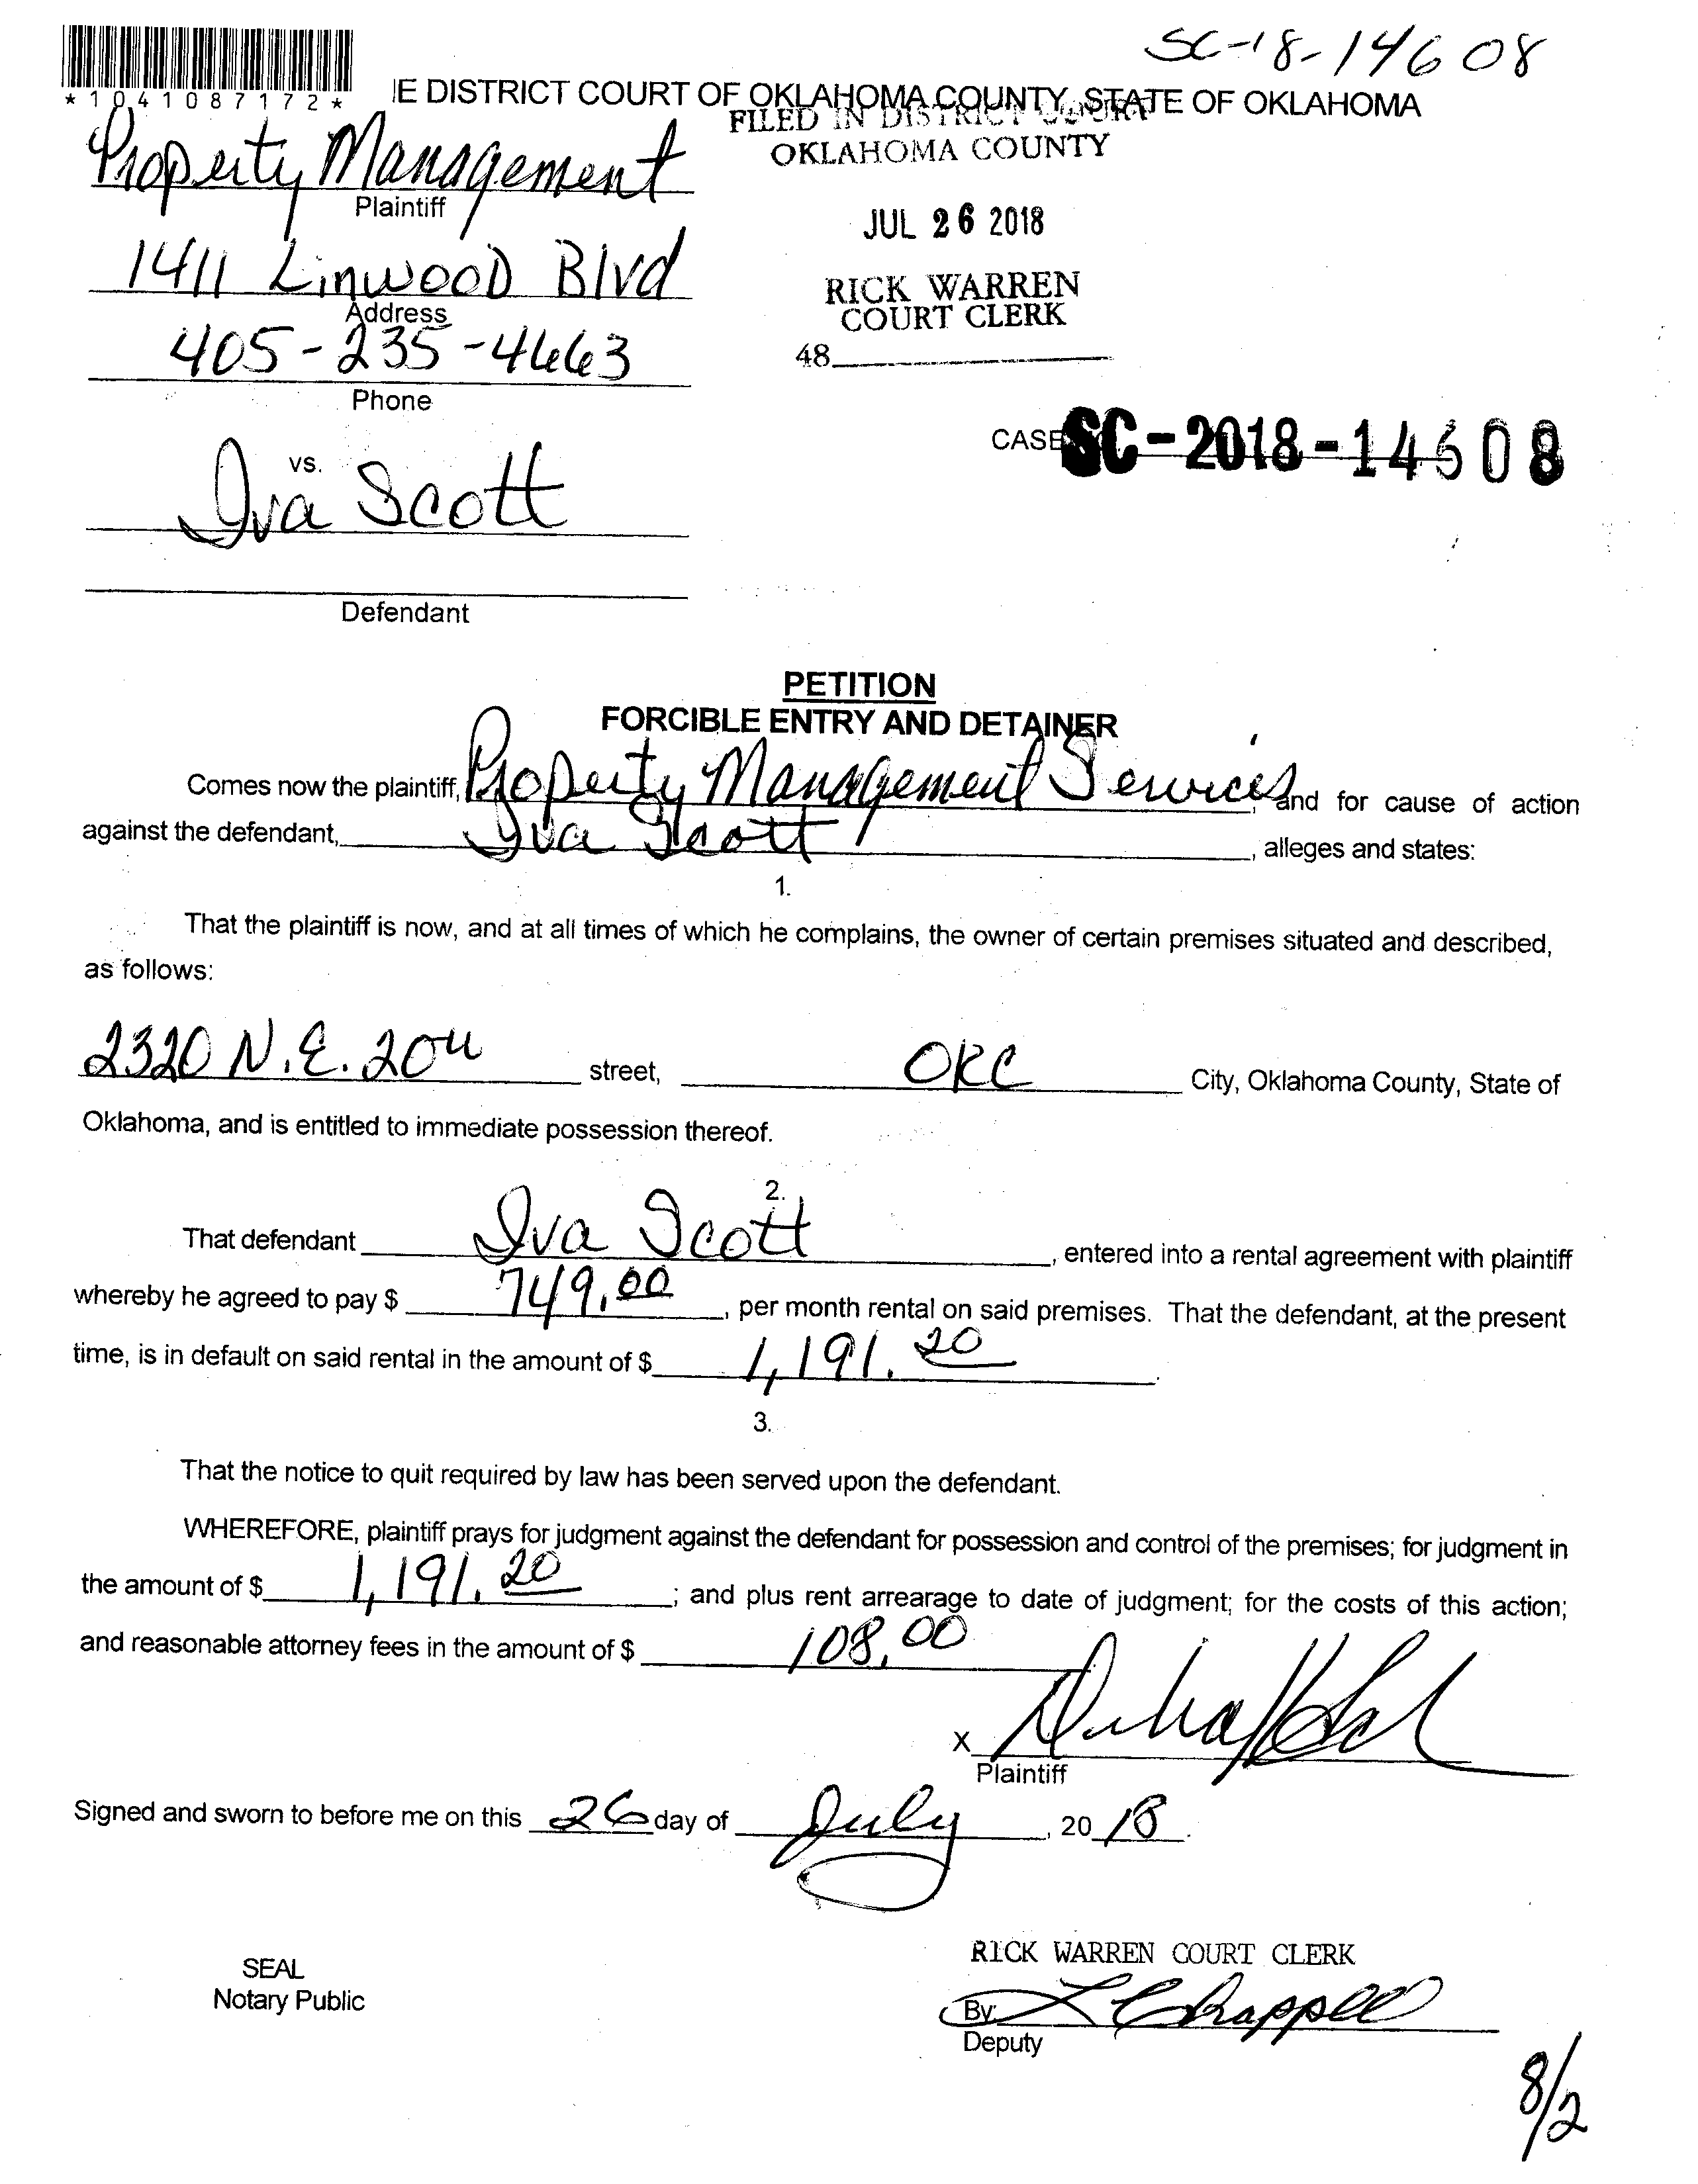 SC-18-14608
*1041087172*
IE DISTRICT COURT OF OKLAHOMA COUNTY, STATE OF OKLAHOMA
FILED IN DISTRICT COURT
OKLAHOMA COUNTY
Property Management
Plaintiff
JUL 26 2018
1411 Linwood Blvd
RICK WARREN
COURT CLERK
Address
405-235-4663
48
Phone
CASE SC-2018-14608
vs.
Iva Scott
Defendant
PETITION
FORCIBLE ENTRY AND DETAINER
Comes now the plaintiff, Property Management Services, and for cause of action
against the defendant, Iva Scott, alleges and states:
1.
That the plaintiff is now, and at all times of which he complains, the owner of certain premises situated and described,
as follows:
2320 N.E. 20th street, OKC City, Oklahoma County, State of
Oklahoma, and is entitled to immediate possession thereof.
2.
That defendant Iva Scott, entered into a rental agreement with plaintiff
whereby he agreed to pay $ 749.00, per month rental on said premises. That the defendant, at the present
time, is in default on said rental in the amount of $ 1,191.20.
3.
That the notice to quit required by law has been served upon the defendant.
WHEREFORE, plaintiff prays for judgment against the defendant for possession and control of the premises; for judgment in
the amount of $ 1,191.20; and plus rent arrearage to date of judgment; for the costs of this action;
and reasonable attorney fees in the amount of $ 108.00
X
Plaintiff
Signed and sworn to before me on this 26 day of July, 20 18.
RICK WARREN COURT CLERK
SEAL
Notary Public
By: L Chappell
Deputy
8/2